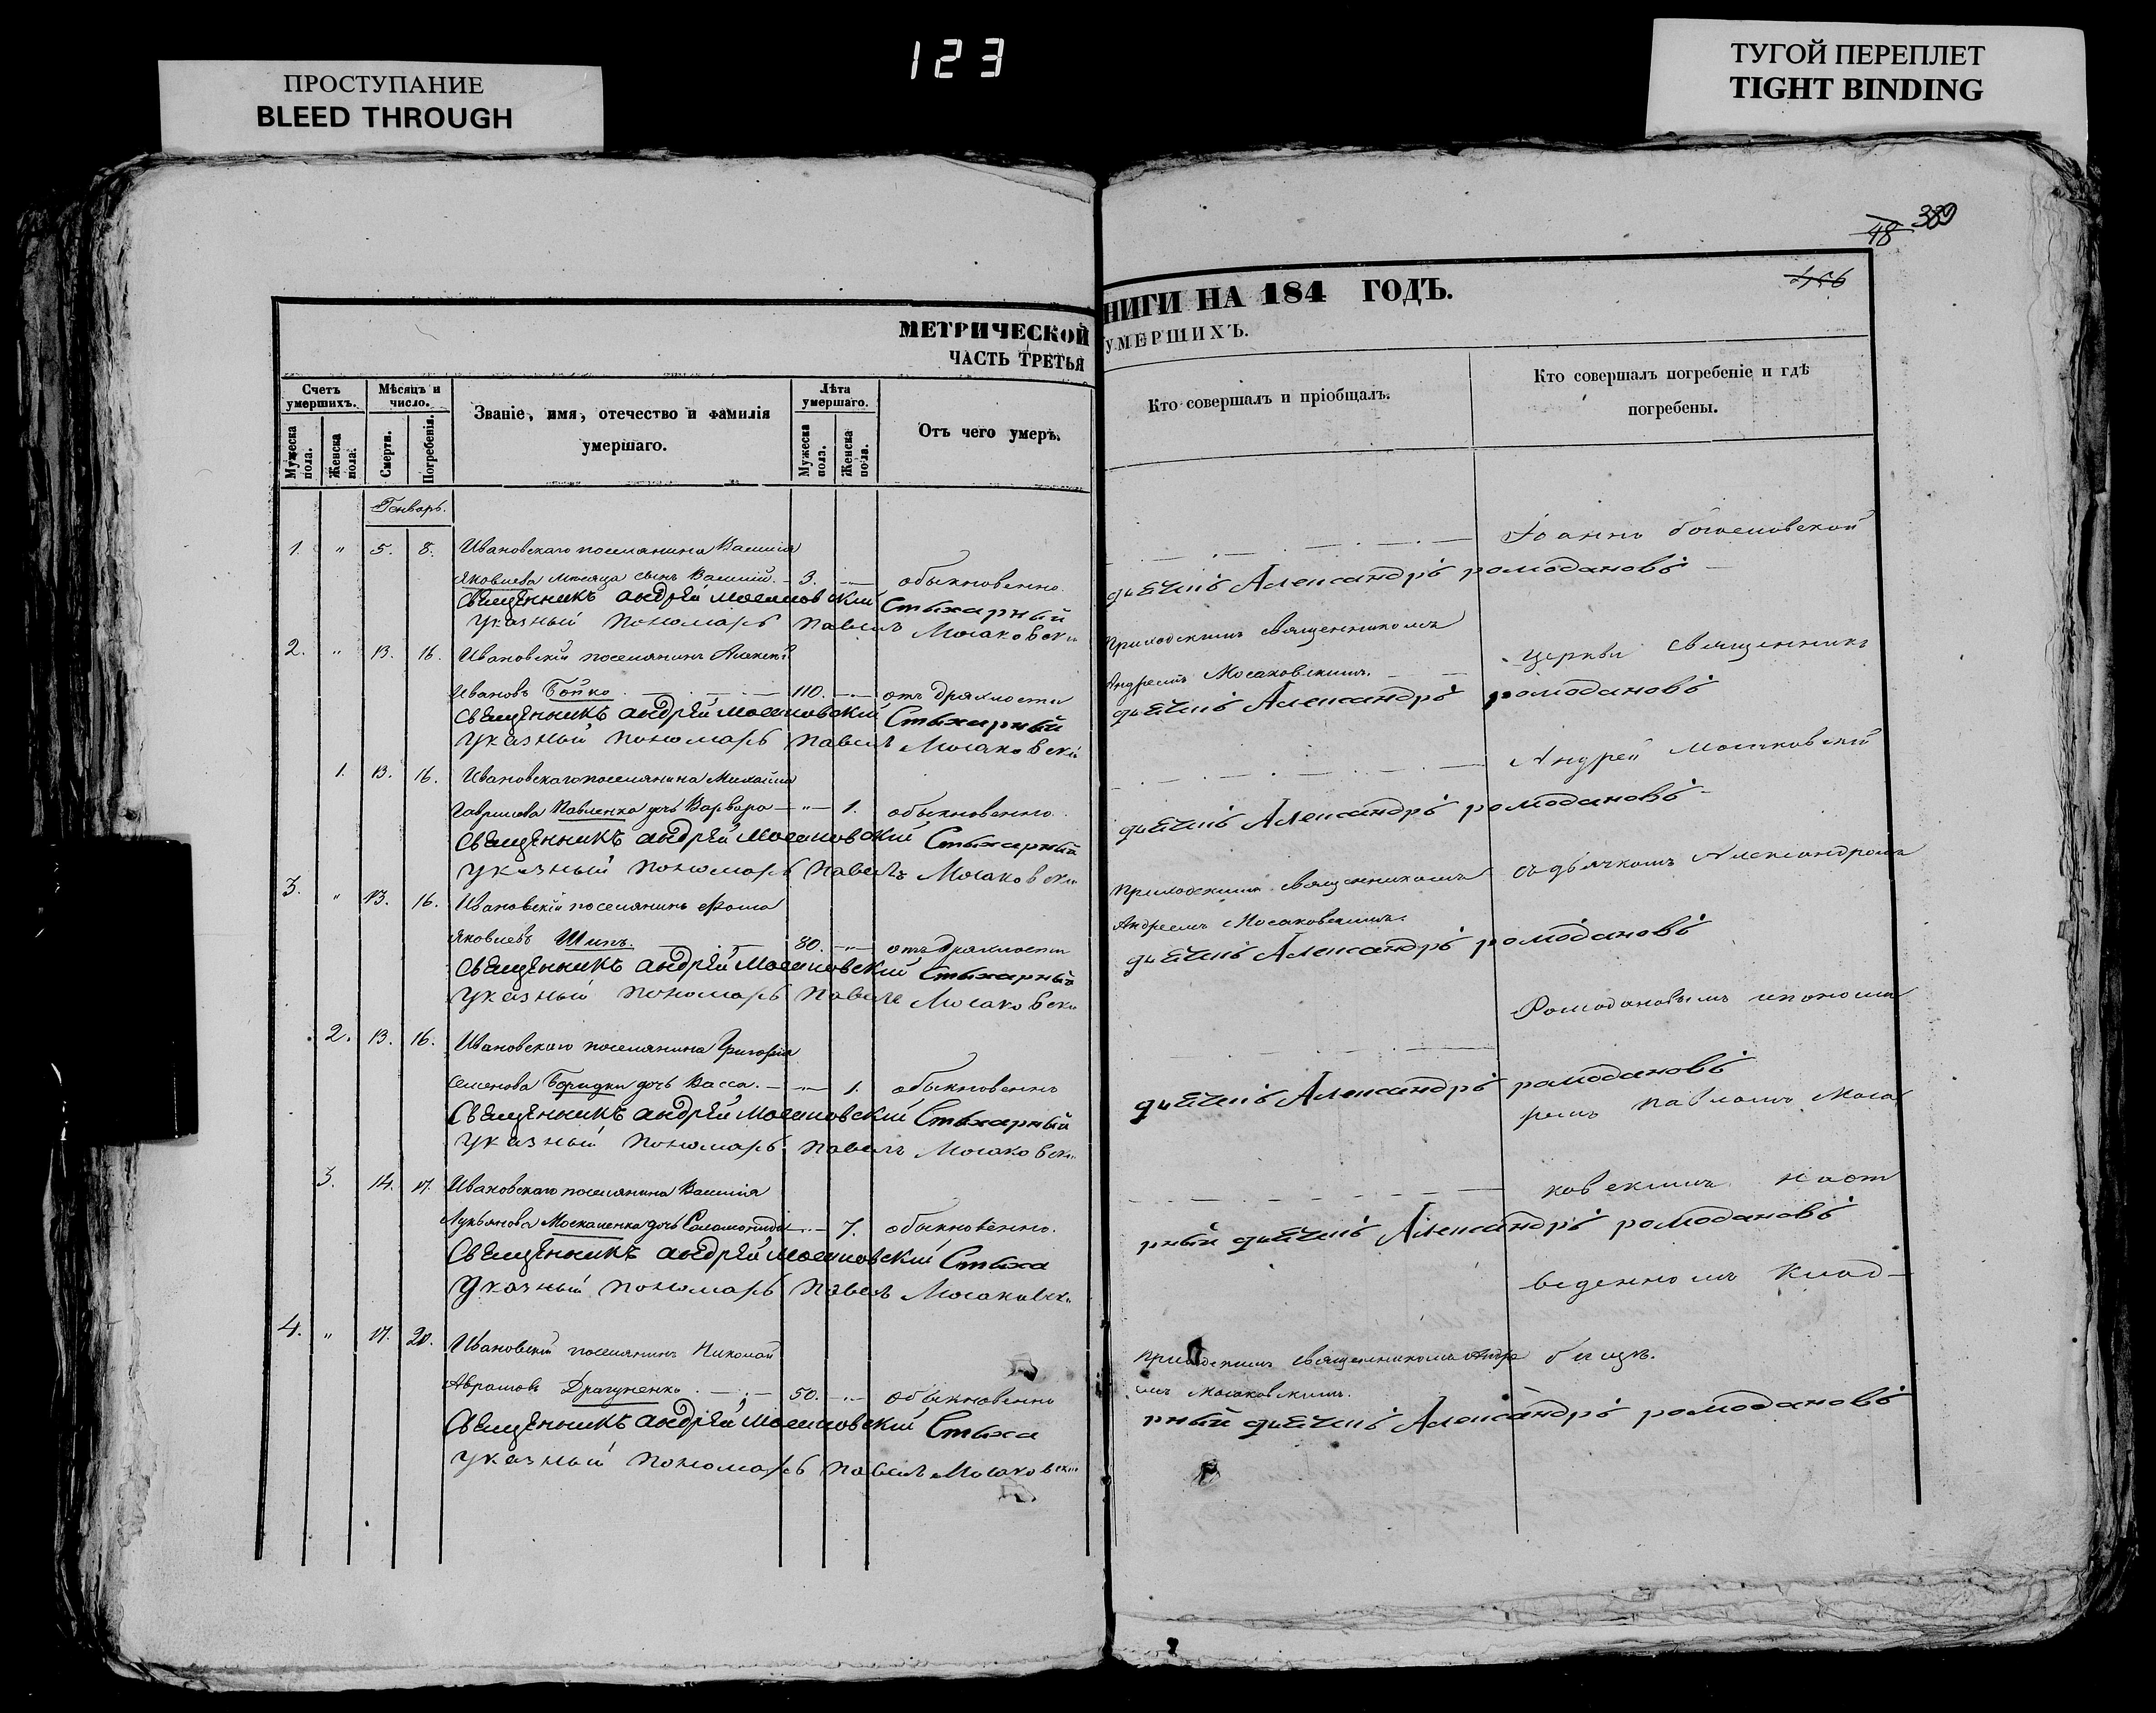 123
ПРОСТУПАНИЕ
BLEED THROUGH
ТУГОЙ ПЕРЕПЛЕТ
TIGHT BINDING
48 389
МЕТРИЧЕСКОЙ
ЧАСТЬ ТРЕТЬЯ
Счетъ умершихъ.
Мужеска пола.
Женска пола.
Мѣсяцъ и число.
Смерти.
Погребенія.
Званіе, имя, отечество и фамилія
умершаго.
Лѣта умершаго.
Мужеска пола.
Женска пола.
Отъ чего умеръ.
Генварь.
1. " 5. 8. Ивановскаго поселянина Василія
Яковлева сынъ Василій. 3. обыкновенно
Священникъ Андрей Мосаковский Стыхарный
Указный пономарь Павелъ Мосаковски
2. " 13. 16. Ивановскій поселянинъ Алексей
Ивановъ Бойко 110. отъ дряхлости
Священникъ Андрей Мосаковский Стыхарный
Указный пономарь Павелъ Мосаковский
1. 13. 16. Ивановскаго поселянина Михаила
Гаврилова Павленка дочь Варвара " 1. обыкновенно
Священникъ Андрей Мосаковский Стыхарный
Указный пономарь Павелъ Мосаковски
3. " 13. 16. Ивановскій поселянинъ Фома
Яковлевъ Шипъ. 80. " отъ дряхлости
Священникъ Андрей Мосаковский Стыхарный
Указный пономарь Павелъ Мосаковски
2. 13. 16. Ивановскаго поселянина Григорія
Семенова дочь Васса. " 1. обыкновенно
Священникъ Андрей Мосаковский Стыхарный
Указный пономарь Павелъ Мосаковски
3. 14. 17. Ивановскаго поселянина Василія
Лукьянова Москаленка дочь Соломонида 7. обыкновенно.
Священникъ Андрей Мосаковский Стыха
Указный пономарь Павелъ Мосаковск
4. " 17. 20. Ивановскій поселянинъ Николай
Аврамовъ Драгуненко 50. обыкновенно
Священникъ Андрей Мосаковский Стыха
Указный пономарь Павелъ Мосаковски
НИГИ НА 184 ГОДЪ.
УМЕРШИХЪ.
Кто совершалъ и пріобщалъ.
Кто совершалъ погребеніе и гдѣ
погребены.
Іоанно Богословской
дьячекъ Александръ Ромодановъ
Приходскимъ священникомъ
церкви священникъ
Андреемъ Мосаковскимъ.
дьячекъ Александръ Ромодановъ
Андрей Мосаковский
дьячекъ Александръ Ромодановъ
съ дьячкомъ Александромъ
Приходскимъ священникомъ
Андреемъ Мосаковскимъ.
дьячекъ Александръ Ромодановъ
Ромодановымъ и понома
дьячекъ Александръ Ромодановъ
ремъ Павломъ Моса
ковскимъ на от
рный дьячекъ Александръ Ромодановъ
веденномъ клад-
Приходскимъ священникомъ Андре
бищѣ.
емъ Мосаковскимъ.
рный дьячекъ Александръ Ромодановъ